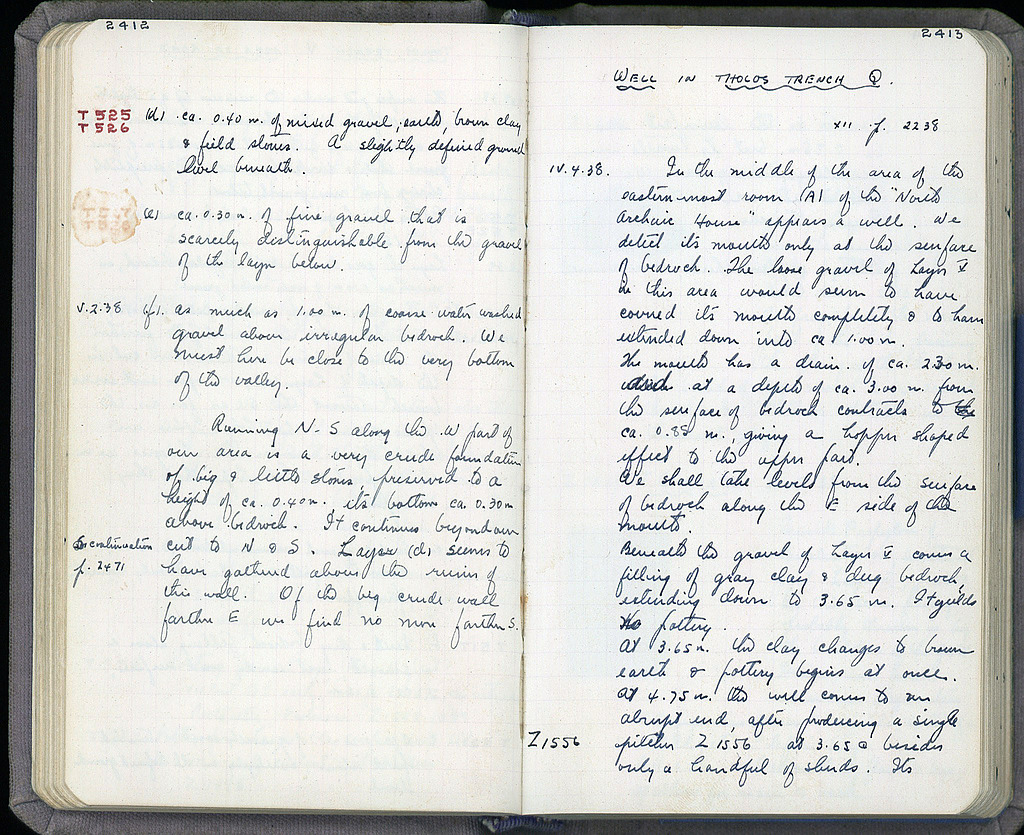 2412
T 525
T 526
(d) ca. 0.40 m. of mixed gravel, earth, brown clay
& field stones. A slightly defined ground
level beneath.
(e) ca. 0.30 m. of fine gravel that is
scarcely distinguishable from the gravel
of the layer below.
V.2.38 (f). as much as 1.00 m. of coarse water washed
gravel above irregular bedrock. We
must here be close to the very bottom
of the valley.
Running N-S along the W part of
our area is a very crude foundation
of big & little stones, preserved to a
height of ca. 0.40 m. its bottom ca. 0.30 m
above bedrock. It continues beyond our
cut to N & S. Layer (d) seems to
have gathered above the ruins of
this wall. Of the big crude wall
farther E we find no more farther S.
For continuation
p. 2471
2413
WELL IN THOLOS TRENCH Q.
XII. p. 2238
IV.4.38. In the middle of the area of the
eastern-most room (A) of the "North
Archaic House" appears a well. We
detect its mouth only at the surface
of bedrock. The loose gravel of Layer V
in this area would seem to have
covered its mouth completely & to have
extended down into ca 1.00 m.
The mouth has a diam. of ca. 2.30 m.
which at a depth of ca. 3.00 m. from
the surface of bedrock contracts to
ca. 0.85 m., giving a hopper shaped
effect to the upper part.
We shall take levels from the surface
of bedrock along the E side of the
mouth.
Beneath the gravel of Layer V comes a
filling of gray clay & dug bedrock,
extending down to 3.65 m. It yields
no pottery.
At 3.65 m. the clay changes to brown
earth & pottery begins at once.
At 4.75 m. the well comes to an
abrupt end, after producing a single
Z 1556 pitcher Z 1556 at 3.65 besides
only a handful of sherds. Its